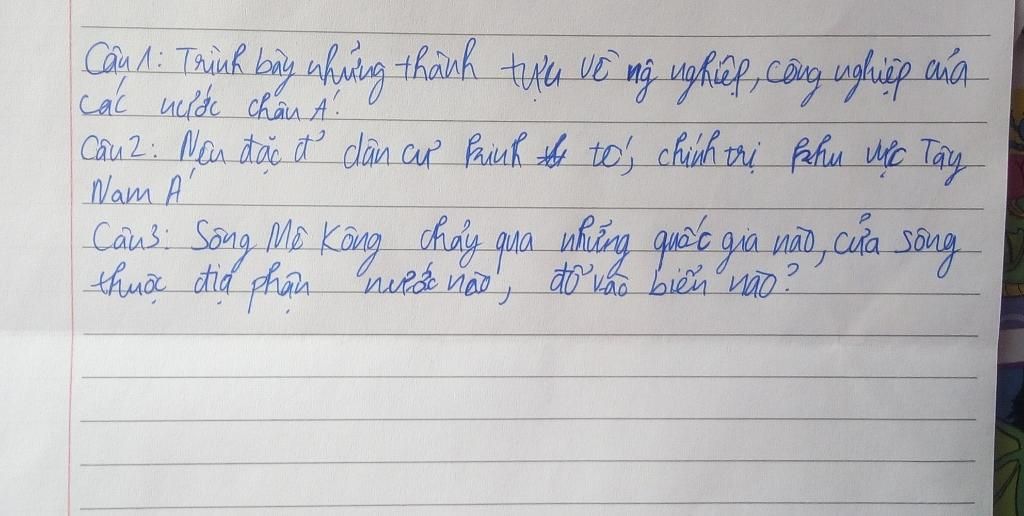 Câu 1: Trình bày những thành tựu về ng nghiệp, công nghiệp của
các nước châu Á.
Câu 2: Nêu đặc đ' dân cư kinh tế, chính trị khu vực Tây
Nam Á
Câu 3: Sông Mê Kông chảy qua những quốc gia nào, cửa sông
thuộc địa phận nước nào, đổ vào biển nào?